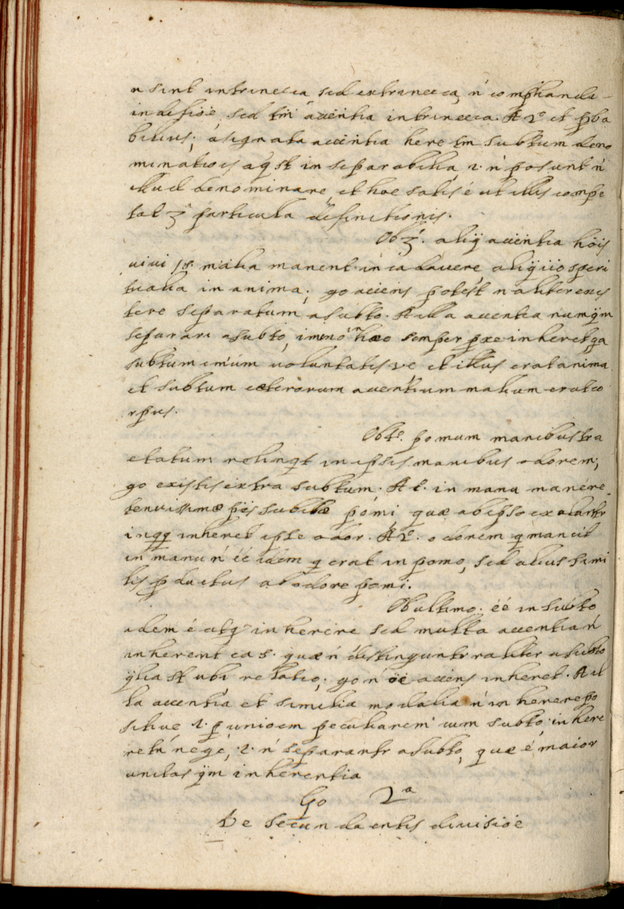 n sint intrinseca sed extrinseca, ñ comphendi-
in difiōe, sed tm̃ accẽntia intrinseca. R 2º. et proba
bilius; assignata accentia here tm̃ subtum deno
minatiōis aq̃ st inseparabilia, i. ñ posunt ñ
illud denominare, et hoc satis é ut illis compe
tat 3ª particula difinitionis.
Ob 3º. aliq̃ accẽntia hõis
vivi sr. mãlia manent in cadavere aliq̃ vo speri
tualia in anima; go accẽns potest nãliter exis
tere separatum a subto. R illa accentia numq̃m
separari a subto, immo hæc semper præ inheret, qa
subtum primum voluntatis et illius erat anima
et subtum cæterorum accentium malium erat co
rpus.
Ob 4º. pomum manibus tra
ctatum relinq̃t in ipsis manibus odorem,
go existit extra subtum. R t. in manu manere
tenuissimæ ptẽs subtilæ pomi quæ ab ipso exalantr
in qq inheret ipse odor. R 2º. odorem q manet
in manu ñ éé idem q erat in pomo, sed alius simi
lis productus ab odore pomi.
Ob ultimo. éé in subto
idem é atq̃ inherere sed multa accentia ñ
inherent ea s. quæ ñ distinguntr raliter a subto
q̃lia st ubi relatio; go ñ oẽ accẽns inheret. R il
la accentia et similia modalia ñ inherere po
sitive i. p unioem peculiarem cum subto inhere
re tñ nege, i. ñ separantr a subto, quæ é maior
unitas q̃m inherentia
Go 2ª
De secunda entis divisiõe